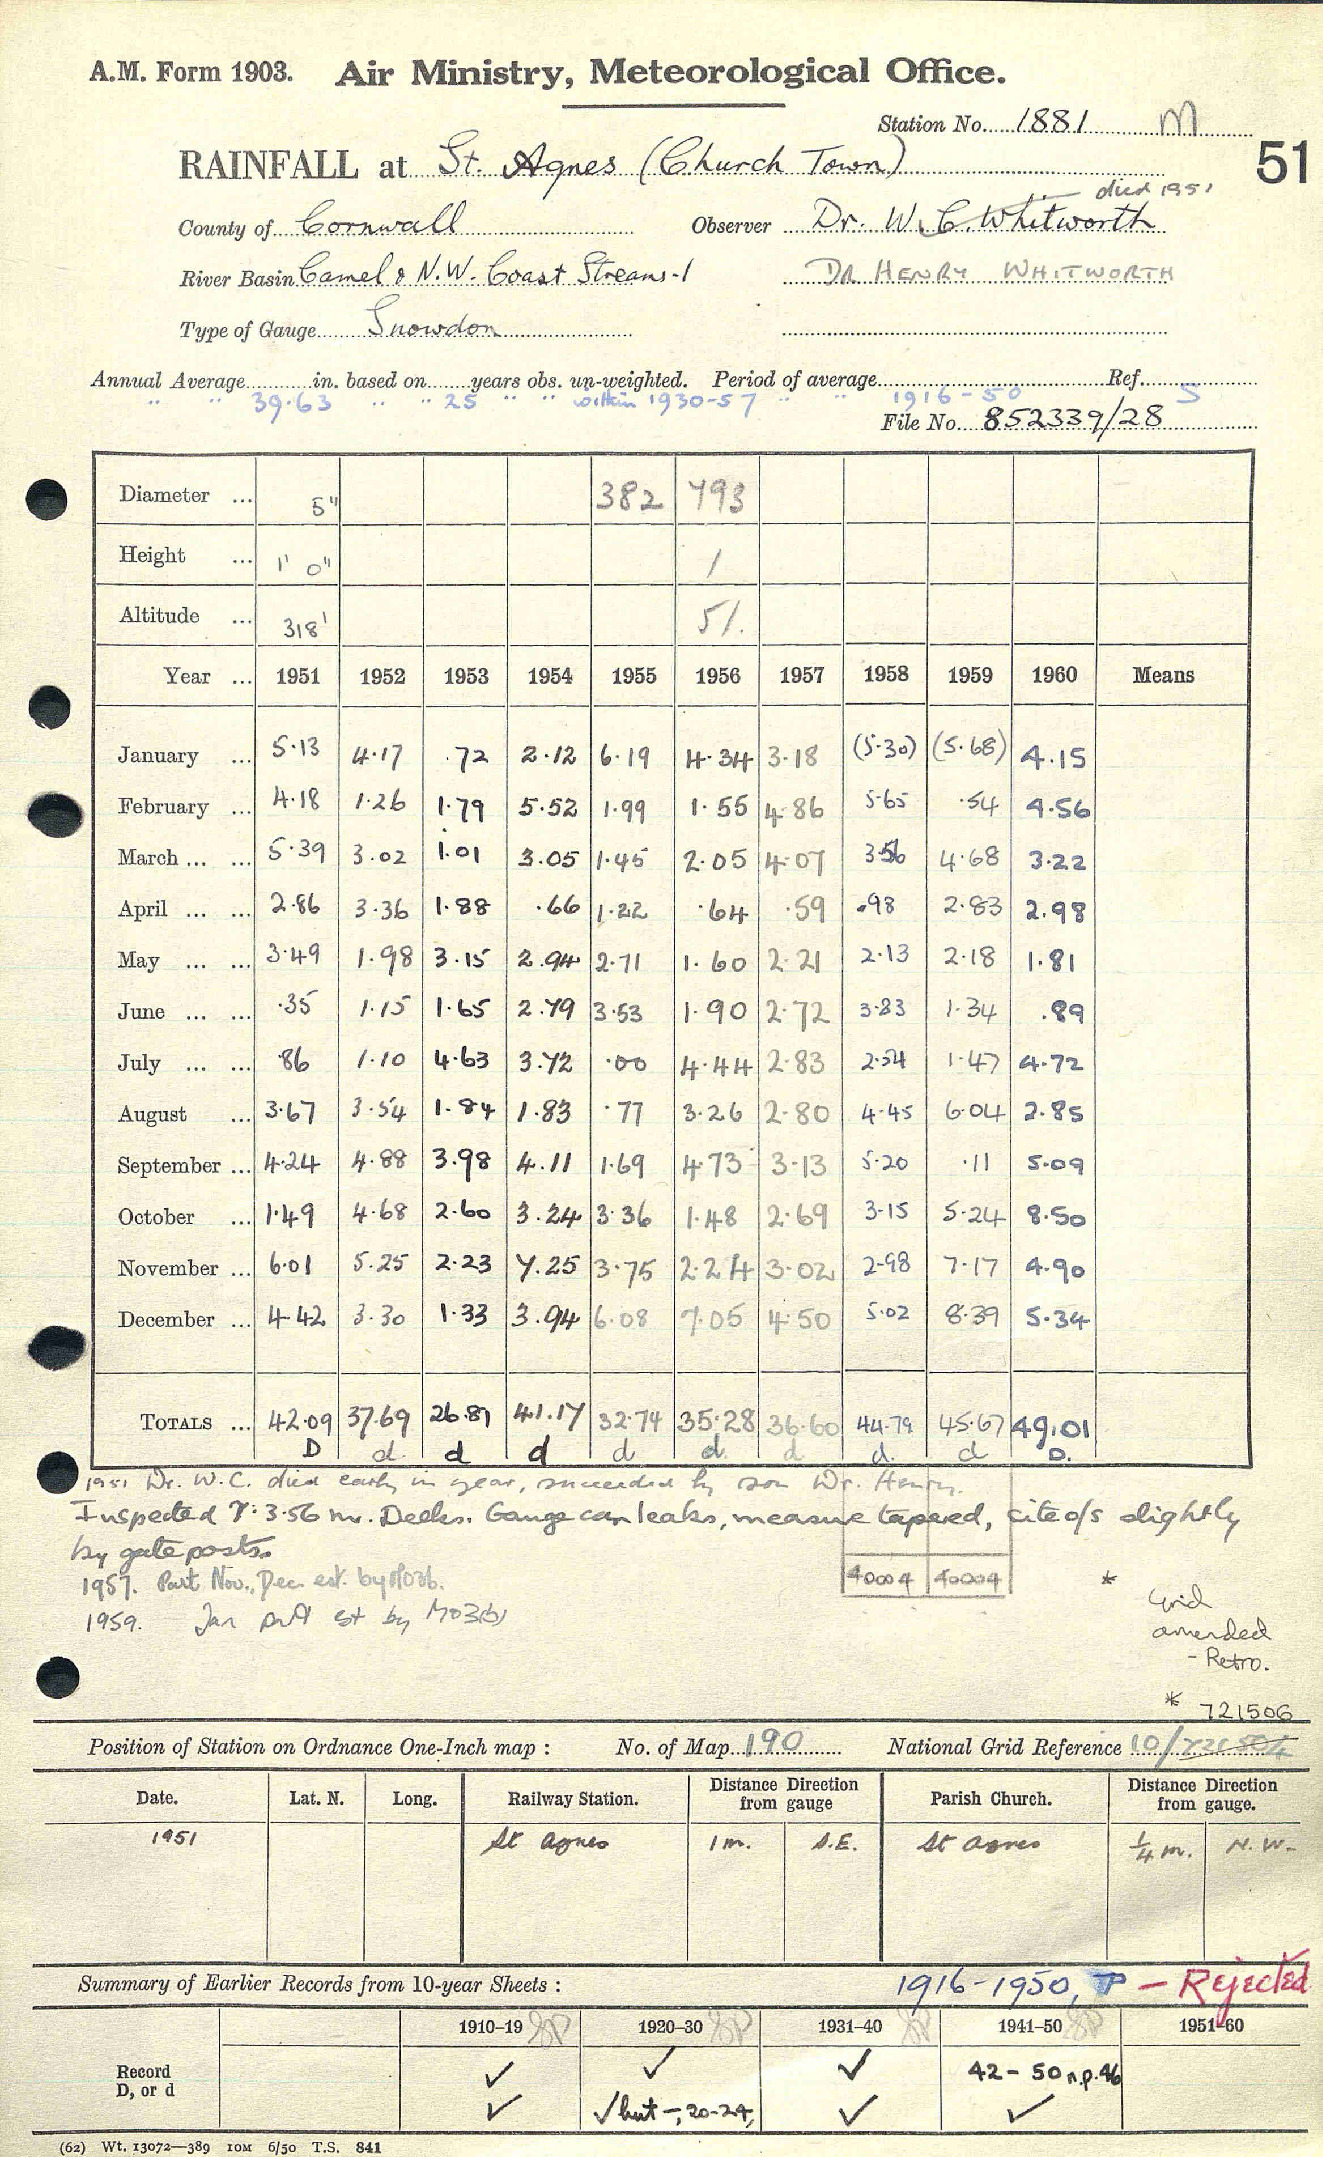 A.M. Form 1903. Air Ministry, Meteorological Office.
Station No. 1881 M
51
RAINFALL at St. Agnes (Church Town)
died 1951
County of Cornwall Observer Dr. W. C. Whitworth
River Basin Camel & N.W. Coast Streams-1 DR HENRY WHITWORTH
Type of Gauge Snowdon
Annual Average in. based on years obs. un-weighted. Period of average Ref.
" " 39.63 " " 25 " " within 1930-57 " " 1916-50 S
File No. 852339/28
Diameter ... 5" 382 793
Height ... 1' 0" 1
Altitude ... 318' 51.
Year ... 1951 1952 1953 1954 1955 1956 1957 1958 1959 1960 Means
January ... 5.13 4.17 .72 2.12 6.19 4.34 3.18 (5.30) (5.68) 4.15
February ... 4.18 1.26 1.79 5.52 1.99 1.55 4.86 5.65 .54 4.56
March ... ... 5.39 3.02 1.01 3.05 1.45 2.05 4.07 3.56 4.68 3.22
April ... ... 2.86 3.36 1.88 .66 1.22 .64 .59 .98 2.83 2.98
May ... ... 3.49 1.98 3.15 2.94 2.71 1.60 2.21 2.13 2.18 1.81
June ... ... .35 1.15 1.65 2.79 3.53 1.90 2.72 3.83 1.34 .89
July ... ... .86 1.10 4.63 3.72 .00 4.44 2.83 2.54 1.47 4.72
August ... 3.67 3.54 1.84 1.83 .77 3.26 2.80 4.45 6.04 2.85
September ... 4.24 4.88 3.98 4.11 1.69 4.73 3.13 5.20 .11 5.09
October ... 1.49 4.68 2.60 3.24 3.36 1.48 2.69 3.15 5.24 8.50
November ... 6.01 5.25 2.23 7.25 3.75 2.24 3.02 2.98 7.17 4.90
December ... 4.42 3.30 1.33 3.94 6.08 7.05 4.50 5.02 8.39 5.34
TOTALS ... 42.09 37.69 26.81 41.17 32.74 35.28 36.60 44.79 45.67 49.01
D d. d d d d. d d. d D.
1951 Dr. W.C. died early in year, succeeded by son Dr. Henry.
Inspected 7.3.56 Mr. Deeks. Gauge can leaks, measure tapered, site o/s slightly
by gate posts.
1957. Part Nov., Dec. est. by M03b.
40004 40004
1959. Jan part est by M03(b)
* Grid
amended
- Retro.
* 721506
Position of Station on Ordnance One-Inch map : No. of Map 190 National Grid Reference 10/721504
Date. Lat. N. Long. Railway Station. Distance Direction from gauge Parish Church. Distance Direction from gauge.
1951 St Agnes 1 m. S.E. St Agnes ¼ m. N.W.
Summary of Earlier Records from 10-year Sheets : 1916-1950, P - Rejected
1910-19 1920-30 1931-40 1941-50 1951-60
Record ✓ ✓ ✓ 42-50 n.p.46
D, or d ✓ ✓ but -, 20-24, ✓ ✓
(62) Wt. 13072—389 10M 6/50 T.S. 841